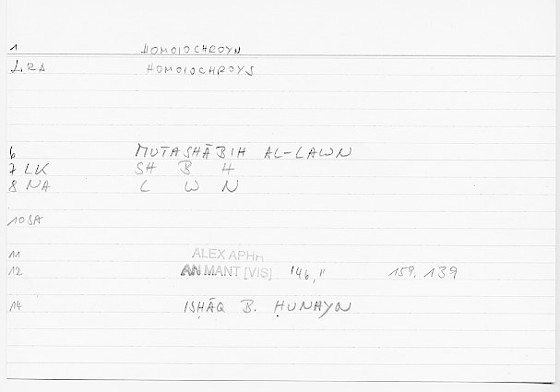 1 HOMOIOCHROYN
2RA HOMOIOCHROYS
6 MUTASHĀBIH AL-LAWN
7 LK SH B H
8 NA L W N
10 SA
11 ALEX APHR
12 AN MANT [VIS] 146, 11 159. 139
14 ISḤĀQ B. ḤUNAYN